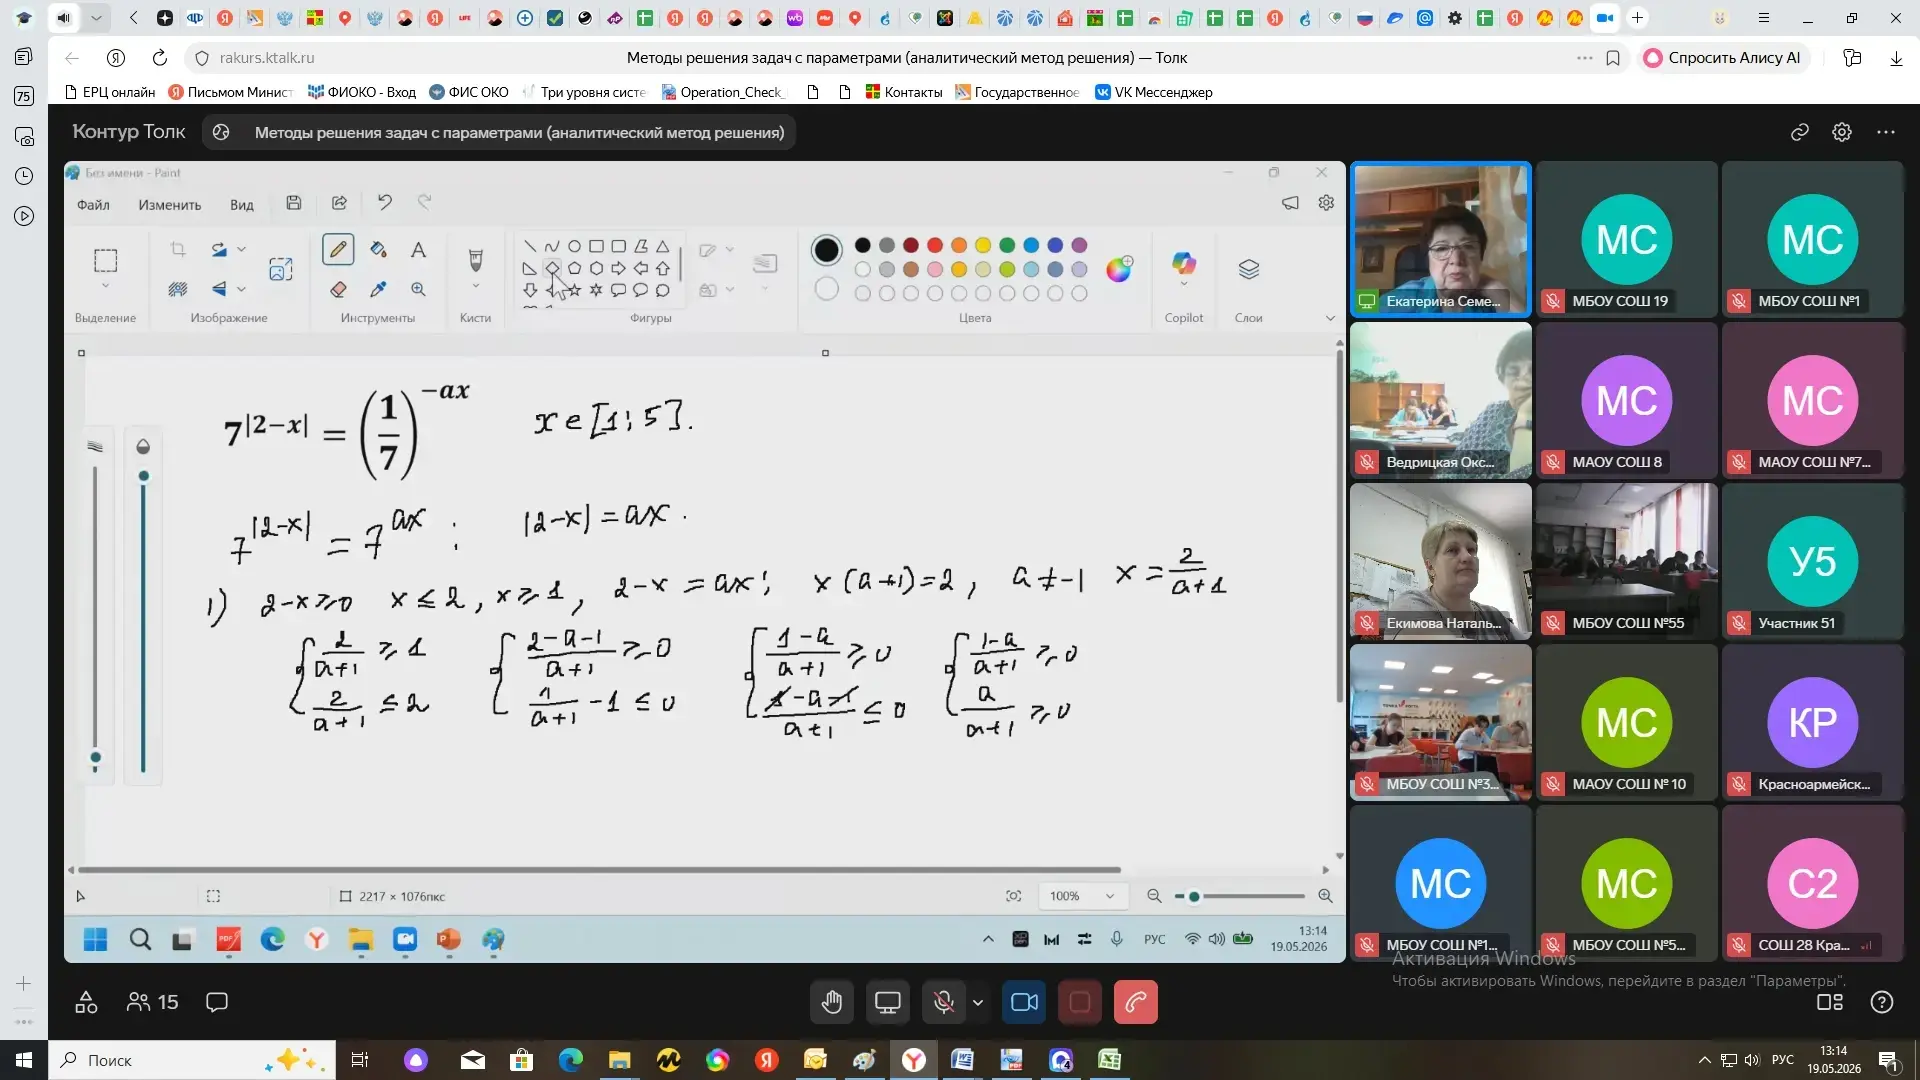 rakurs.ktalk.ru
Методы решения задач с параметрами (аналитический метод решения) — Толк
Спросить Алису AI
75
ЕРЦ онлайн
Письмом Минист
ФИОКО - Вход
ФИС ОКО
Три уровня систе
Operation_Check_
Контакты
Государственное
VK Мессенджер
Контур Толк
Методы решения задач с параметрами (аналитический метод решения)
Без имени - Paint
Файл Изменить Вид
Выделение
Изображение
Инструменты
Кисти
Фигуры
Цвета
Copilot
Слои
7^{|2−x|} = (1/7)^{−ax} x ∈ [1; 5].
7^{|2-x|} = 7^{ax} ; |2-x| = ax.
1) 2-x ⩾ 0 x ≤ 2, x ⩾ 1, 2-x = ax; x(a+1)=2, a ≠ -1 x = 2/(a+1)
{ 2/(a+1) ⩾ 1 { (2-a-1)/(a+1) ⩾ 0 { (1-a)/(a+1) ⩾ 0 { (1-a)/(a+1) ⩾ 0
2/(a+1) ≤ 2 1/(a+1) - 1 ≤ 0 (1-a-1)/(a+1) ≤ 0 a/(a+1) ⩾ 0
2217 × 1076пкс
100%
РУС
13:14
19.05.2026
Екатерина Семе...
МС
МБОУ СОШ 19
МС
МБОУ СОШ №1
Ведрицкая Окс...
МС
МАОУ СОШ 8
МС
МАОУ СОШ №7...
Екимова Наталь...
МБОУ СОШ №55
У5
Участник 51
МБОУ СОШ №3...
МС
МАОУ СОШ № 10
КР
Красноармейск...
МС
МБОУ СОШ №1...
МС
МБОУ СОШ №5...
С2
СОШ 28 Кра...
Активация Windows
Чтобы активировать Windows, перейдите в раздел "Параметры".
15
Поиск
РУС
13:14
19.05.2026
1